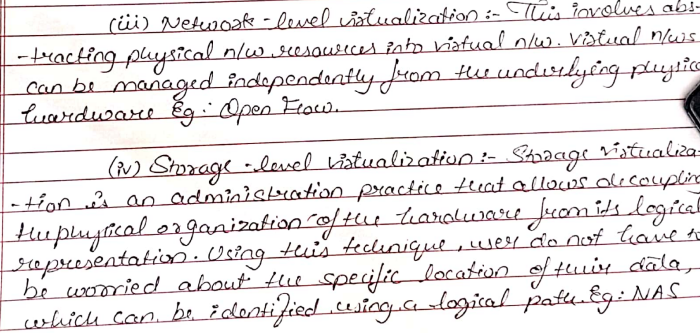 (iii) Network-level virtualization :- This involves abs-
-tracting physical n/w resources into virtual n/w. Virtual n/ws
can be managed independently from the underlying physica
hardware Eg: Open Flow.
(iv) Storage-level virtualization :- Storage virtualiza-
-tion is an administration practice that allows decouplin
the physical organization of the hardware from its logical
representation. Using this technique, user do not have to
be worried about the specific location of their data,
which can be identified using a logical path. Eg: NAS